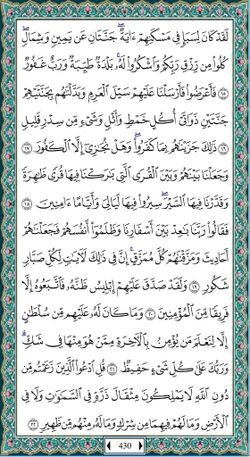 لَقَدْ كَانَ لِسَبَإٍ فِي مَسْكَنِهِمْ ءَايَةٌ ۖ جَنَّتَانِ عَن يَمِينٍ وَشِمَالٍ ۖ
كُلُوا۟ مِن رِّزْقِ رَبِّكُمْ وَٱشْكُرُوا۟ لَهُۥ ۚ بَلْدَةٌ طَيِّبَةٌ وَرَبٌّ غَفُورٌ
١٥ فَأَعْرَضُوا۟ فَأَرْسَلْنَا عَلَيْهِمْ سَيْلَ ٱلْعَرِمِ وَبَدَّلْنَٰهُم بِجَنَّتَيْهِمْ
جَنَّتَيْنِ ذَوَاتَىْ أُكُلٍ خَمْطٍ وَأَثْلٍ وَشَىْءٍ مِّن سِدْرٍ قَلِيلٍ
١٦ ذَٰلِكَ جَزَيْنَٰهُم بِمَا كَفَرُوا۟ ۖ وَهَلْ نُجَٰزِىٓ إِلَّا ٱلْكَفُورَ ١٧
وَجَعَلْنَا بَيْنَهُمْ وَبَيْنَ ٱلْقُرَى ٱلَّتِى بَٰرَكْنَا فِيهَا قُرًى ظَٰهِرَةً
وَقَدَّرْنَا فِيهَا ٱلسَّيْرَ ۖ سِيرُوا۟ فِيهَا لَيَالِىَ وَأَيَّامًا ءَامِنِينَ ١٨
فَقَالُوا۟ رَبَّنَا بَٰعِدْ بَيْنَ أَسْفَارِنَا وَظَلَمُوٓا۟ أَنفُسَهُمْ فَجَعَلْنَٰهُمْ
أَحَادِيثَ وَمَزَّقْنَٰهُمْ كُلَّ مُمَزَّقٍ ۚ إِنَّ فِى ذَٰلِكَ لَءَايَٰتٍ لِّكُلِّ صَبَّارٍ
شَكُورٍ ١٩ وَلَقَدْ صَدَّقَ عَلَيْهِمْ إِبْلِيسُ ظَنَّهُۥ فَٱتَّبَعُوهُ إِلَّا
فَرِيقًا مِّنَ ٱلْمُؤْمِنِينَ ٢٠ وَمَا كَانَ لَهُۥ عَلَيْهِم مِّن سُلْطَٰنٍ
إِلَّا لِنَعْلَمَ مَن يُؤْمِنُ بِٱلْءَاخِرَةِ مِمَّنْ هُوَ مِنْهَا فِى شَكٍّ ۗ
وَرَبُّكَ عَلَىٰ كُلِّ شَىْءٍ حَفِيظٌ ٢١ قُلِ ٱدْعُوا۟ ٱلَّذِينَ زَعَمْتُم مِّن
دُونِ ٱللَّهِ ۖ لَا يَمْلِكُونَ مِثْقَالَ ذَرَّةٍ فِى ٱلسَّمَٰوَٰتِ وَلَا فِى
ٱلْأَرْضِ وَمَا لَهُمْ فِيهِمَا مِن شِرْكٍ وَمَا لَهُۥ مِنْهُم مِّن ظَهِيرٍ ٢٢
430